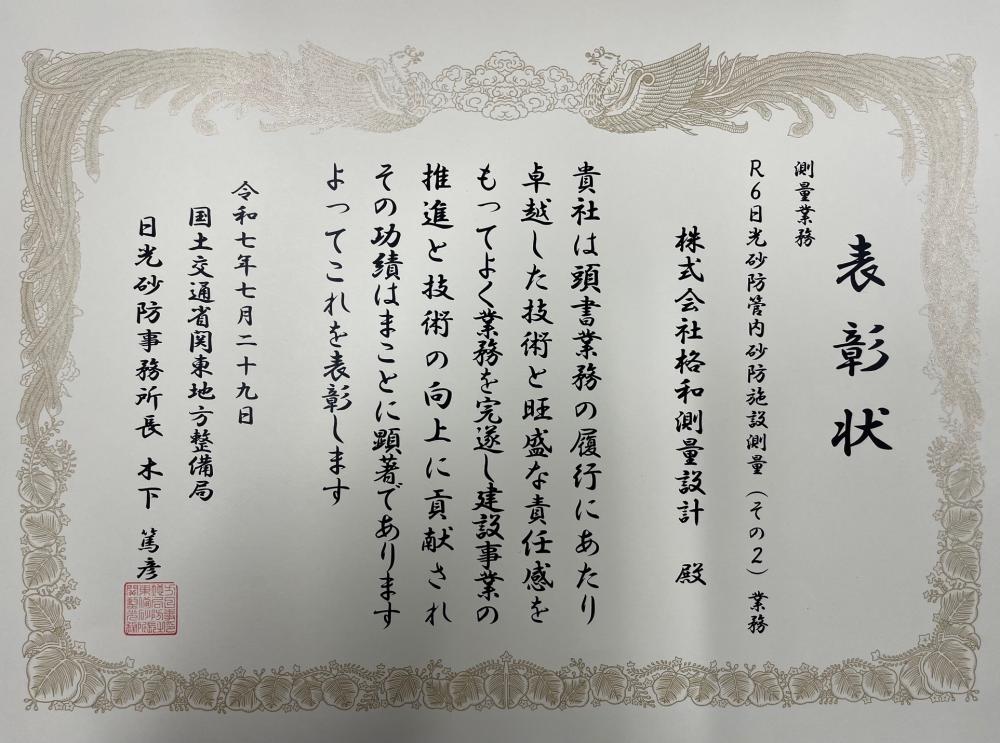 表彰状
測量業務
R6日光砂防管内砂防施設測量(その2)業務
株式会社格和測量設計 殿
貴社は頭書業務の履行にあたり
卓越した技術と旺盛な責任感を
もってよく業務を完遂し建設事業の
推進と技術の向上に貢献され
その功績はまことに顕著であります
よってこれを表彰します
令和七年七月二十九日
国土交通省関東地方整備局
日光砂防事務所長 木下 篤彦